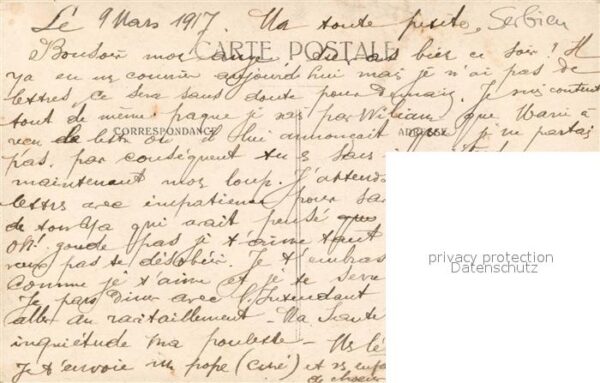 Le 9 Mars 1917. Ma toute petite, Serbien
Bonsoir mon ange bien ce soir! Il
CARTE POSTALE
y a eu un courrier aujourd'hui mais je n'ai pas de
lettres. Ce sera sans doute pour demain. Je suis content
tout de même par William que Marie a
CORRESPONDANCE ADRESSE
lettre où il lui annonçait que je ne partais
pas, par conséquent tu sais
maintenant mon loup. J'attends
lettres avec impatience pour
de ton qui avait pensé que
Oh! gronde pas je t'aime tant
pas te désobéir. Je t'embras
comme je t'aime et je te serre
Je pars diner avec l'Intendant
aller au ravitaillement - Ma santé
inquiétude ma poulette -
Je t'envoie un pope (curé) et
de choeur
privacy protection
Datenschutz